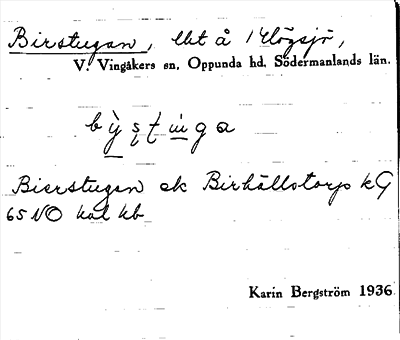 Birstugan, lht å Högsjö,
V. Vingåkers sn, Oppunda hd, Södermanlands län.
Bierstugan ek Birhållstorp kG
65 NO kal kb
Karin Bergström 1936